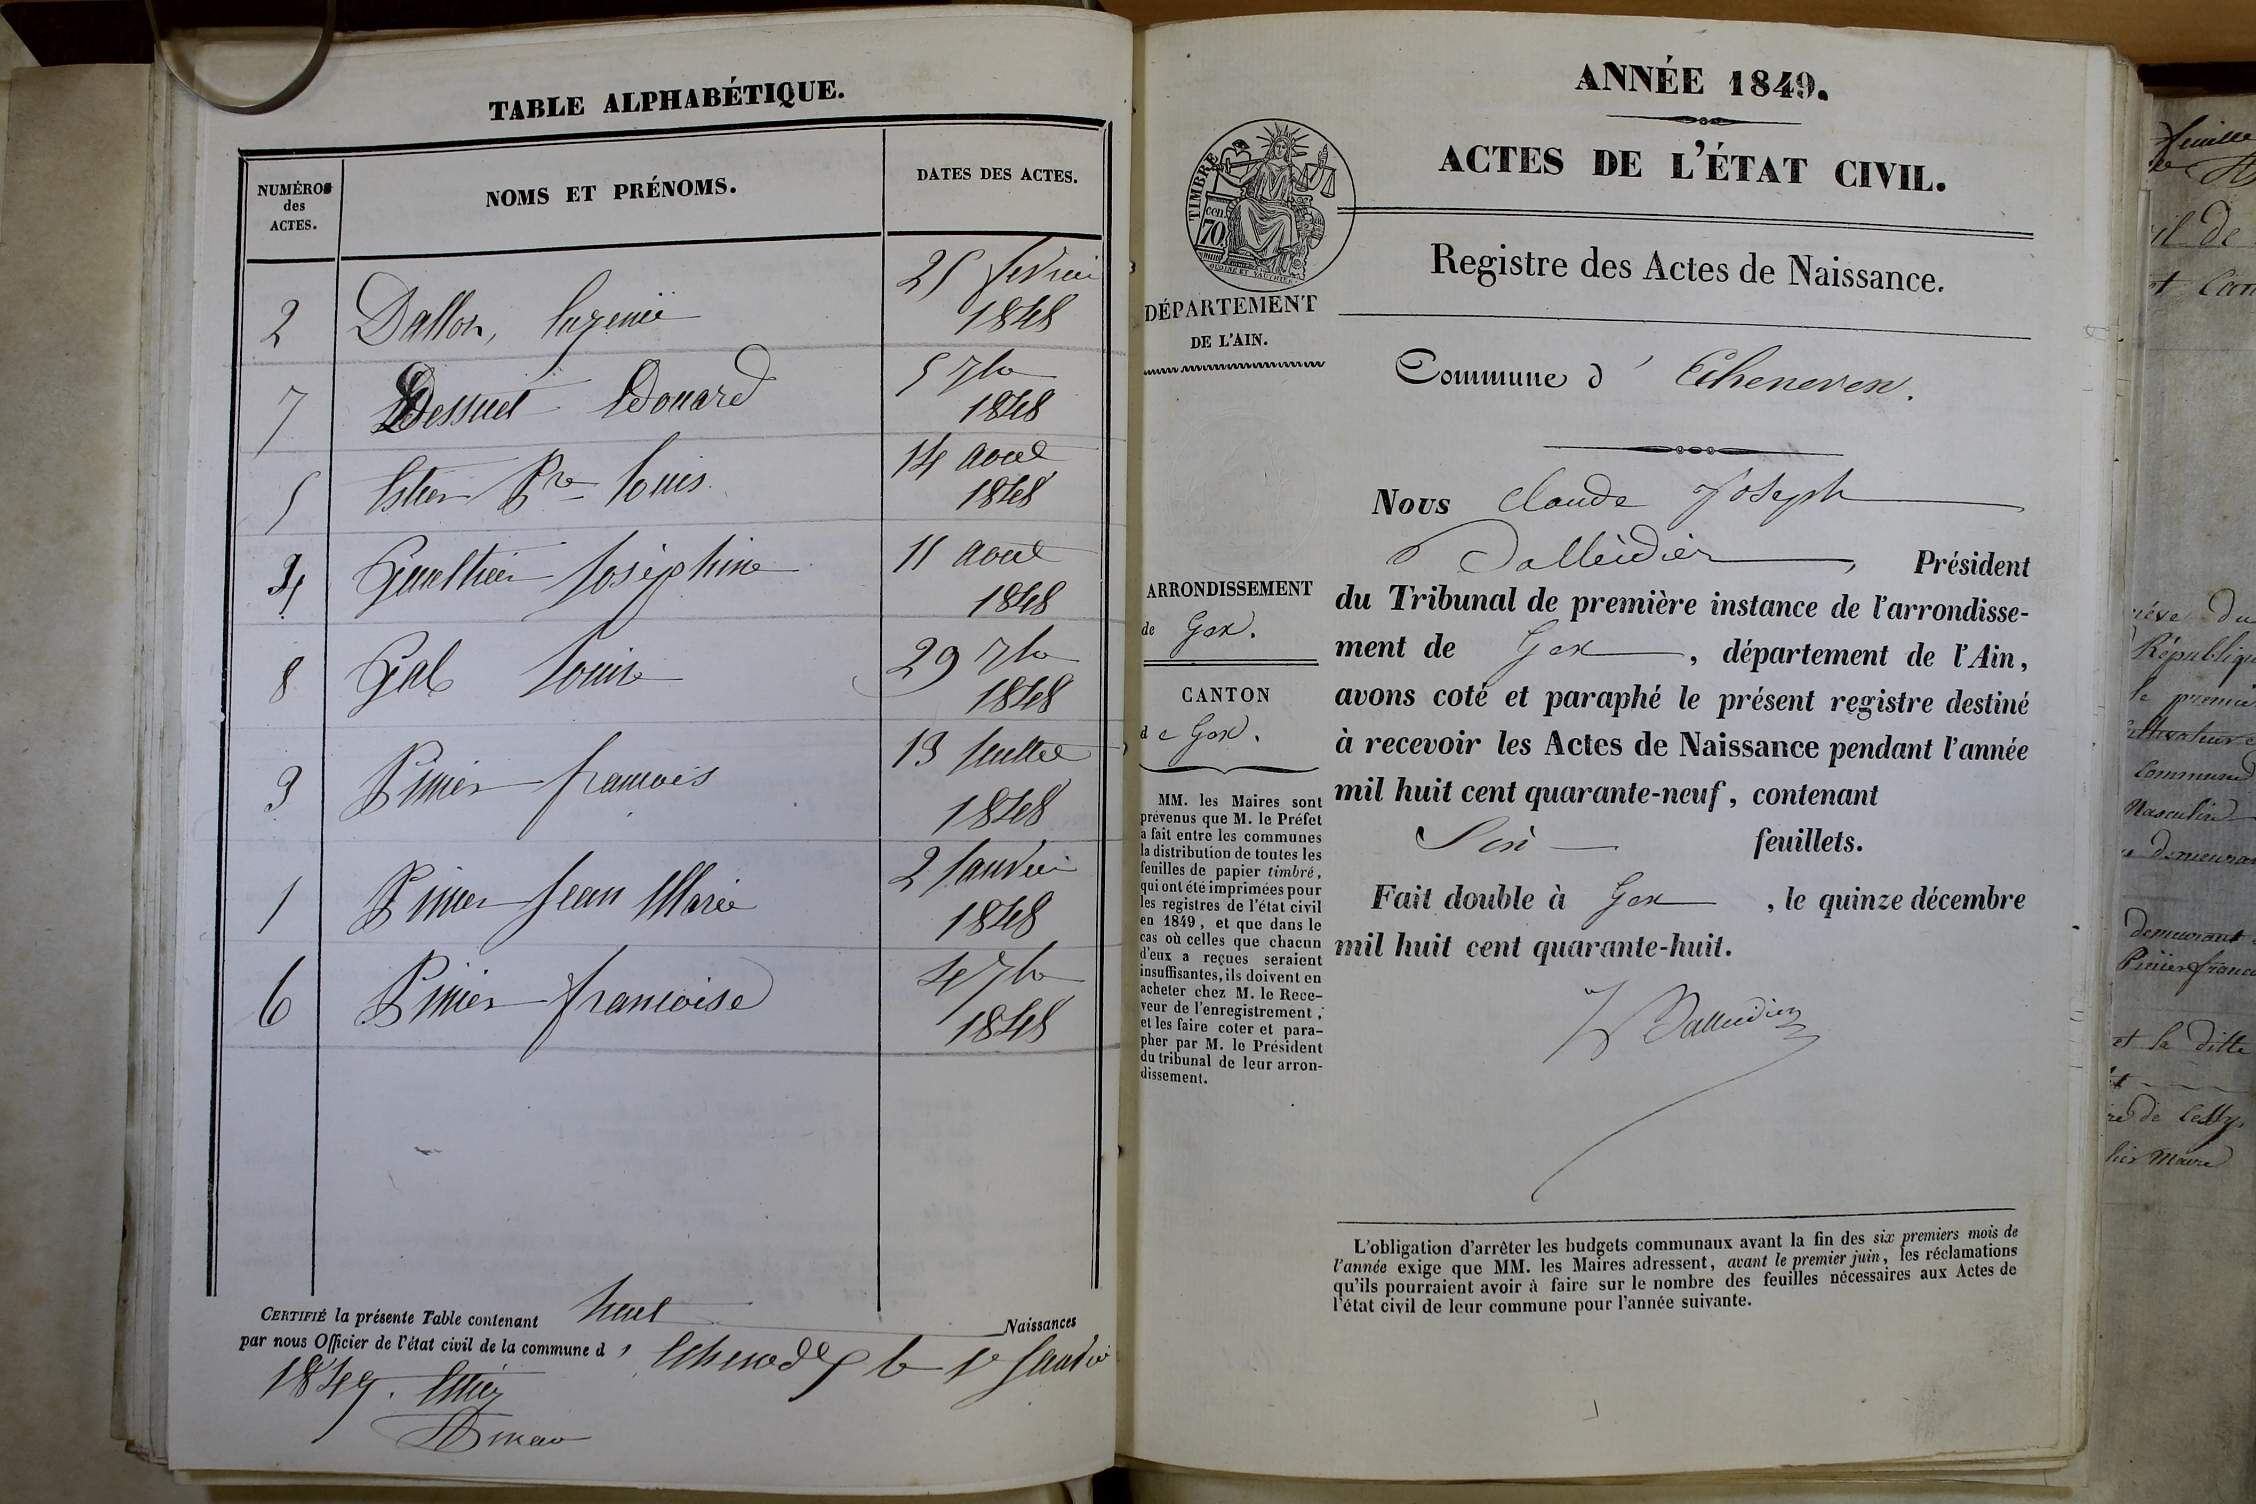 TABLE ALPHABÉTIQUE.
NUMÉROS
des
ACTES.
NOMS ET PRÉNOMS.
DATES DES ACTES.
2 Dallon, Eugenie 25 fevrier
1848
7 Dessuet Edouard 5 7bre
1848
5 Estier Pre Louis 14 aout
1848
4 Gaulthier Joséphine 11 aout
1848
8 Gal Louise 29 7bre
1848
3 Pinier francois 13 Juillet
1848
1 Pinier Jean Marie 2 Janvier
1848
6 Pinier francoise 4 7bre
1848
CERTIFIÉ la présente Table contenant huit Naissances
par nous Officier de l'état civil de la commune d' Echenevex le 1er Janvier
1849. Estier
ANNÉE 1849.
ACTES DE L'ÉTAT CIVIL.
TIMBRE
cen.
70.
OUDINÉ ET VAUTHIER
Registre des Actes de Naissance.
DÉPARTEMENT
DE L'AIN.
Commune d' Echenevex.
ARRONDISSEMENT
de Gex.
CANTON
de Gex.
MM. les Maires sont
prévenus que M. le Préfet
a fait entre les communes
la distribution de toutes les
feuilles de papier timbré,
qui ont été imprimées pour
les registres de l'état civil
en 1849, et que dans le
cas où celles que chacun
d'eux a reçues seraient
insuffisantes, ils doivent en
acheter chez M. le Rece-
veur de l'enregistrement,
et les faire coter et para-
pher par M. le Président
du tribunal de leur arron-
dissement.
Nous Claude Joseph
Balleidier, Président
du Tribunal de première instance de l'arrondisse-
ment de Gex, département de l'Ain,
avons coté et paraphé le présent registre destiné
à recevoir les Actes de Naissance pendant l'année
mil huit cent quarante-neuf, contenant
Six feuillets.
Fait double à Gex, le quinze décembre
mil huit cent quarante-huit.
Balleidier
L'obligation d'arrêter les budgets communaux avant la fin des six premiers mois de
l'année exige que MM. les Maires adressent, avant le premier juin, les réclamations
qu'ils pourraient avoir à faire sur le nombre des feuilles nécessaires aux Actes de
l'état civil de leur commune pour l'année suivante.
feuille
République
le premier
Cultivateur
Commune
Masculin
demeurant
demeurant
Pinier franc
et la ditte
de Cessy,
Maire